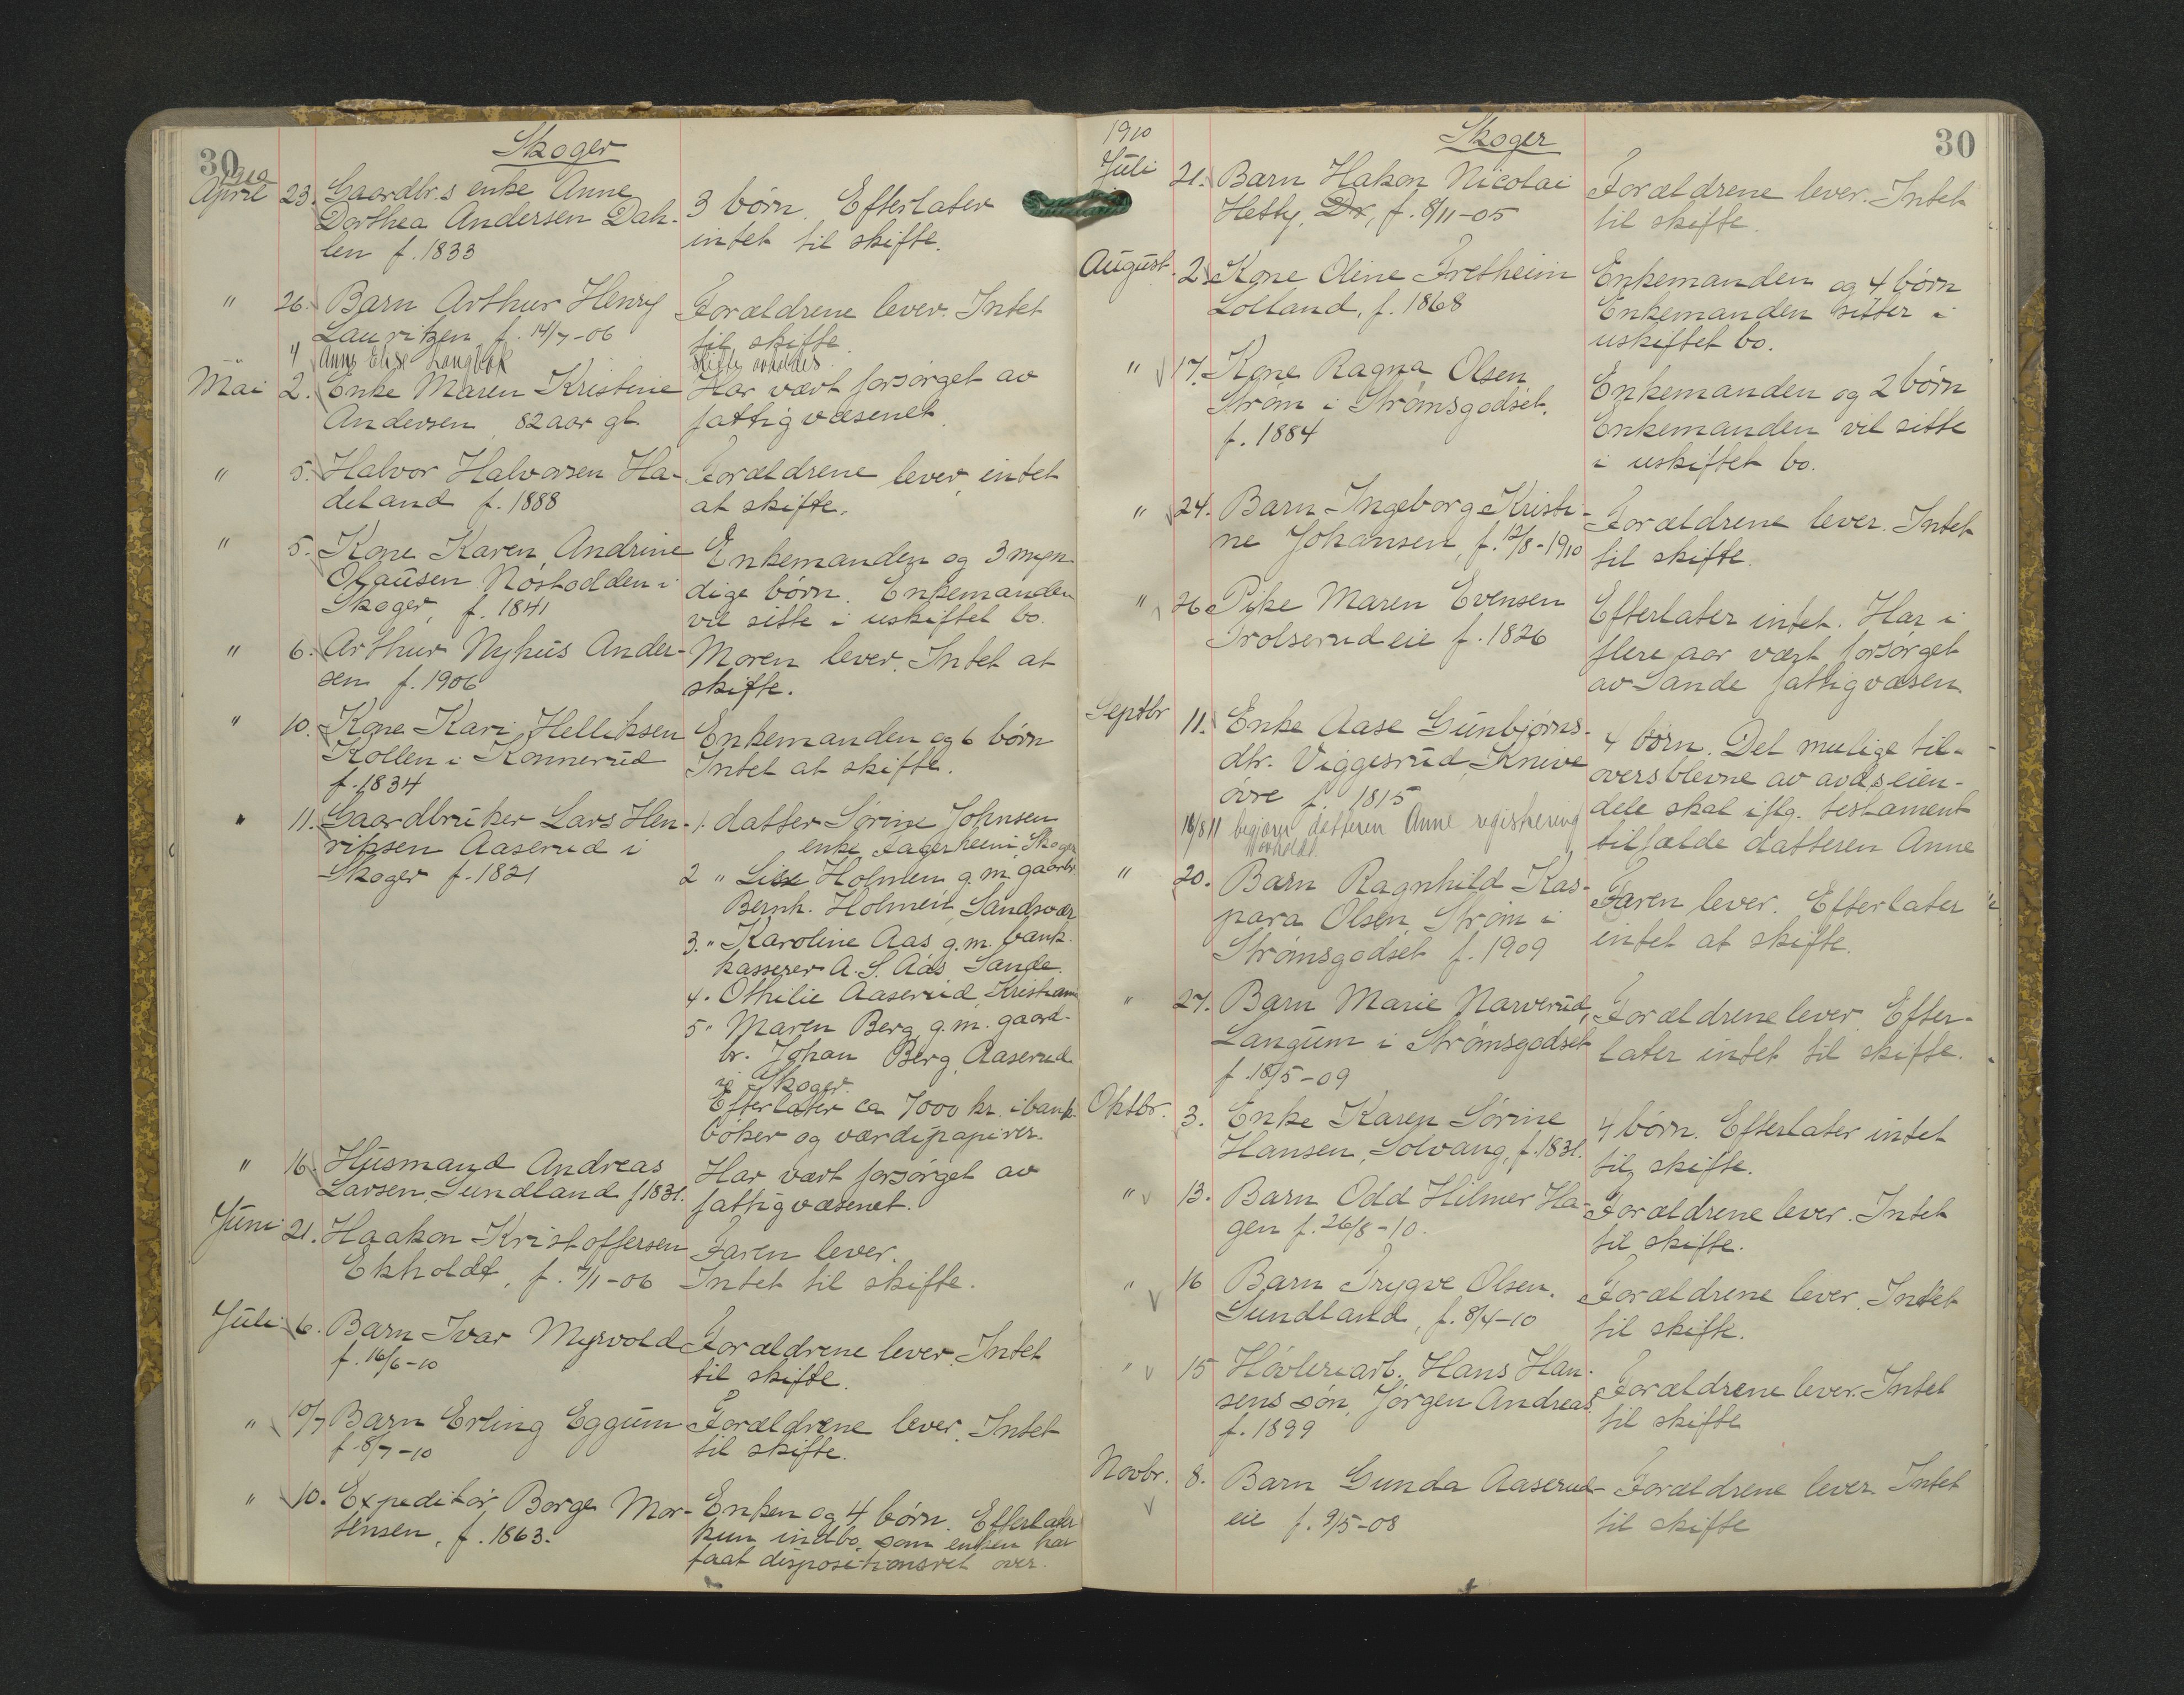 30
Skoger
1910
April 23. Gaardbr.s enke Anne
Dorthea Andersen Dah-
len f. 1833
3 börn. Efterlater
intet til skifte.
" 26. Barn Arthur Henry
Lauritzen f. 14/7-06
Forældrene lever. Intet
til skifte.
" Anne Elise Langbak
Skifte avholdes
Mai 2. Enke Maren Kristine
Andersen, 82 aar gl.
Har vært forsörget av
fattigvæsenet.
" 5. Halvor Halvorsen Ha-
deland f. 1888
Forældrene lever, intet
at skifte.
" 5. Kone Karen Andrine
Olausen Nöstodden i
Skoger, f. 1841
Enkemanden og 3 myn-
dige börn. Enkemanden
vil sitte i uskiftet bo.
" 6. Arthur Nyhus Ander-
sen f. 1906
Moren lever. Intet at
skifte.
" 10. Kone Kari Helliksen
Kollen i Konnerud
f. 1834
Enkemanden og 6 börn
Intet at skifte.
" 11. Gaardbruker Lars Hen-
riksen Aaserud i
Skoger f. 1821
1. datter Sörine Johnsen
enke Fagerheim Skoger
2 " Lise Holmen g. m. gaardbr.
Bernh. Holmen, Sandsvær
3. " Karoline Aas g. m. bank-
kasserer A. S. Aas Sande.
4. Othilie Aaserud, Kristiania
5 " Maren Berg g. m. gaard-
br. Johan Berg, Aaserud
i Skoger.
Efterlater ca 7000 kr. i bank-
böker og værdipapirer.
" 16. Husmand Andreas
Larsen, Sundland f. 1831.
Har vært forsörget av
fattigvæsenet.
Juni 21. Haakon Kristoffersen
Ekholdt, f. 7/1-06
Faren lever.
Intet til skifte.
Juli 6. Barn Ivar Myrvold
f. 16/6-10
Forældrene lever. Intet
til skifte.
" 10/7 Barn Erling Eggum
f. 8/7-10
Forældrene lever. Intet
til skifte.
" 10. Expeditör Borge Mor-
tensen, f. 1863.
Enken og 4 börn. Efterlater
kun indbo, som enken har
faat dispositionsret over.
30
1910
Skoger
Juli 21. Barn Hakon Nicolai
Hetty, Dr, f. 8/11-05
Forældrene lever. Intet
til skifte.
August 2. Kone Oline Fretheim
Lolland, f. 1868
Enkemanden og 4 börn
Enkemanden sitter i
uskiftet bo.
" 17. Kone Ragna Olsen
Ström i Strömsgodset.
f. 1884
Enkemanden og 2 börn
Enkemanden vil sitte
i uskiftet bo.
" 24. Barn Ingeborg Kristi-
ne Johansen, f. 12/8-1910
Forældrene lever. Intet
til skifte.
" 26 Pike Maren Evensen
Trolserudeie f. 1826
Efterlater intet. Har i
flere aar vært forsörget
av Sande fattigvæsen.
Septbr 11. Enke Aase Gunbjörns-
dtr. Viggesrud, Knive
övre f. 1815
4 börn. Det mulige til-
oversblevne av avd.s eien-
dele skal iflg. testament
tilfalde datteren Anne
16/8 11 begjærer datteren Anne registrering
avholdt.
" 20. Barn Ragnhild Kas-
para Olsen, Ström i
Strömsgodset f. 1909
Faren lever. Efterlater
intet at skifte.
" 27. Barn Marie Narverud,
Langum i Strömsgodset
f. 18/5-09
Forældrene lever. Efter-
later intet til skifte.
Oktbr. 3. Enke Karen Sörine
Hansen, Solvang, f. 1831.
4 börn. Efterlater intet
til skifte.
" 13. Barn Odd Hilmer Ha-
gen f. 26/8-10.
Forældrene lever. Intet
til skifte.
" 16 Barn Trygve Olsen.
Sundland, f. 8/4-10
Forældrene lever. Intet
til skifte.
" 15 Hövleriarb. Hans Han-
sens sön, Jörgen Andreas,
f. 1899
Forældrene lever. Intet
til skifte
Novbr. 8. Barn Gunda Aaserud-
eie f. 9/5-08
Forældrene lever. Intet
til skifte